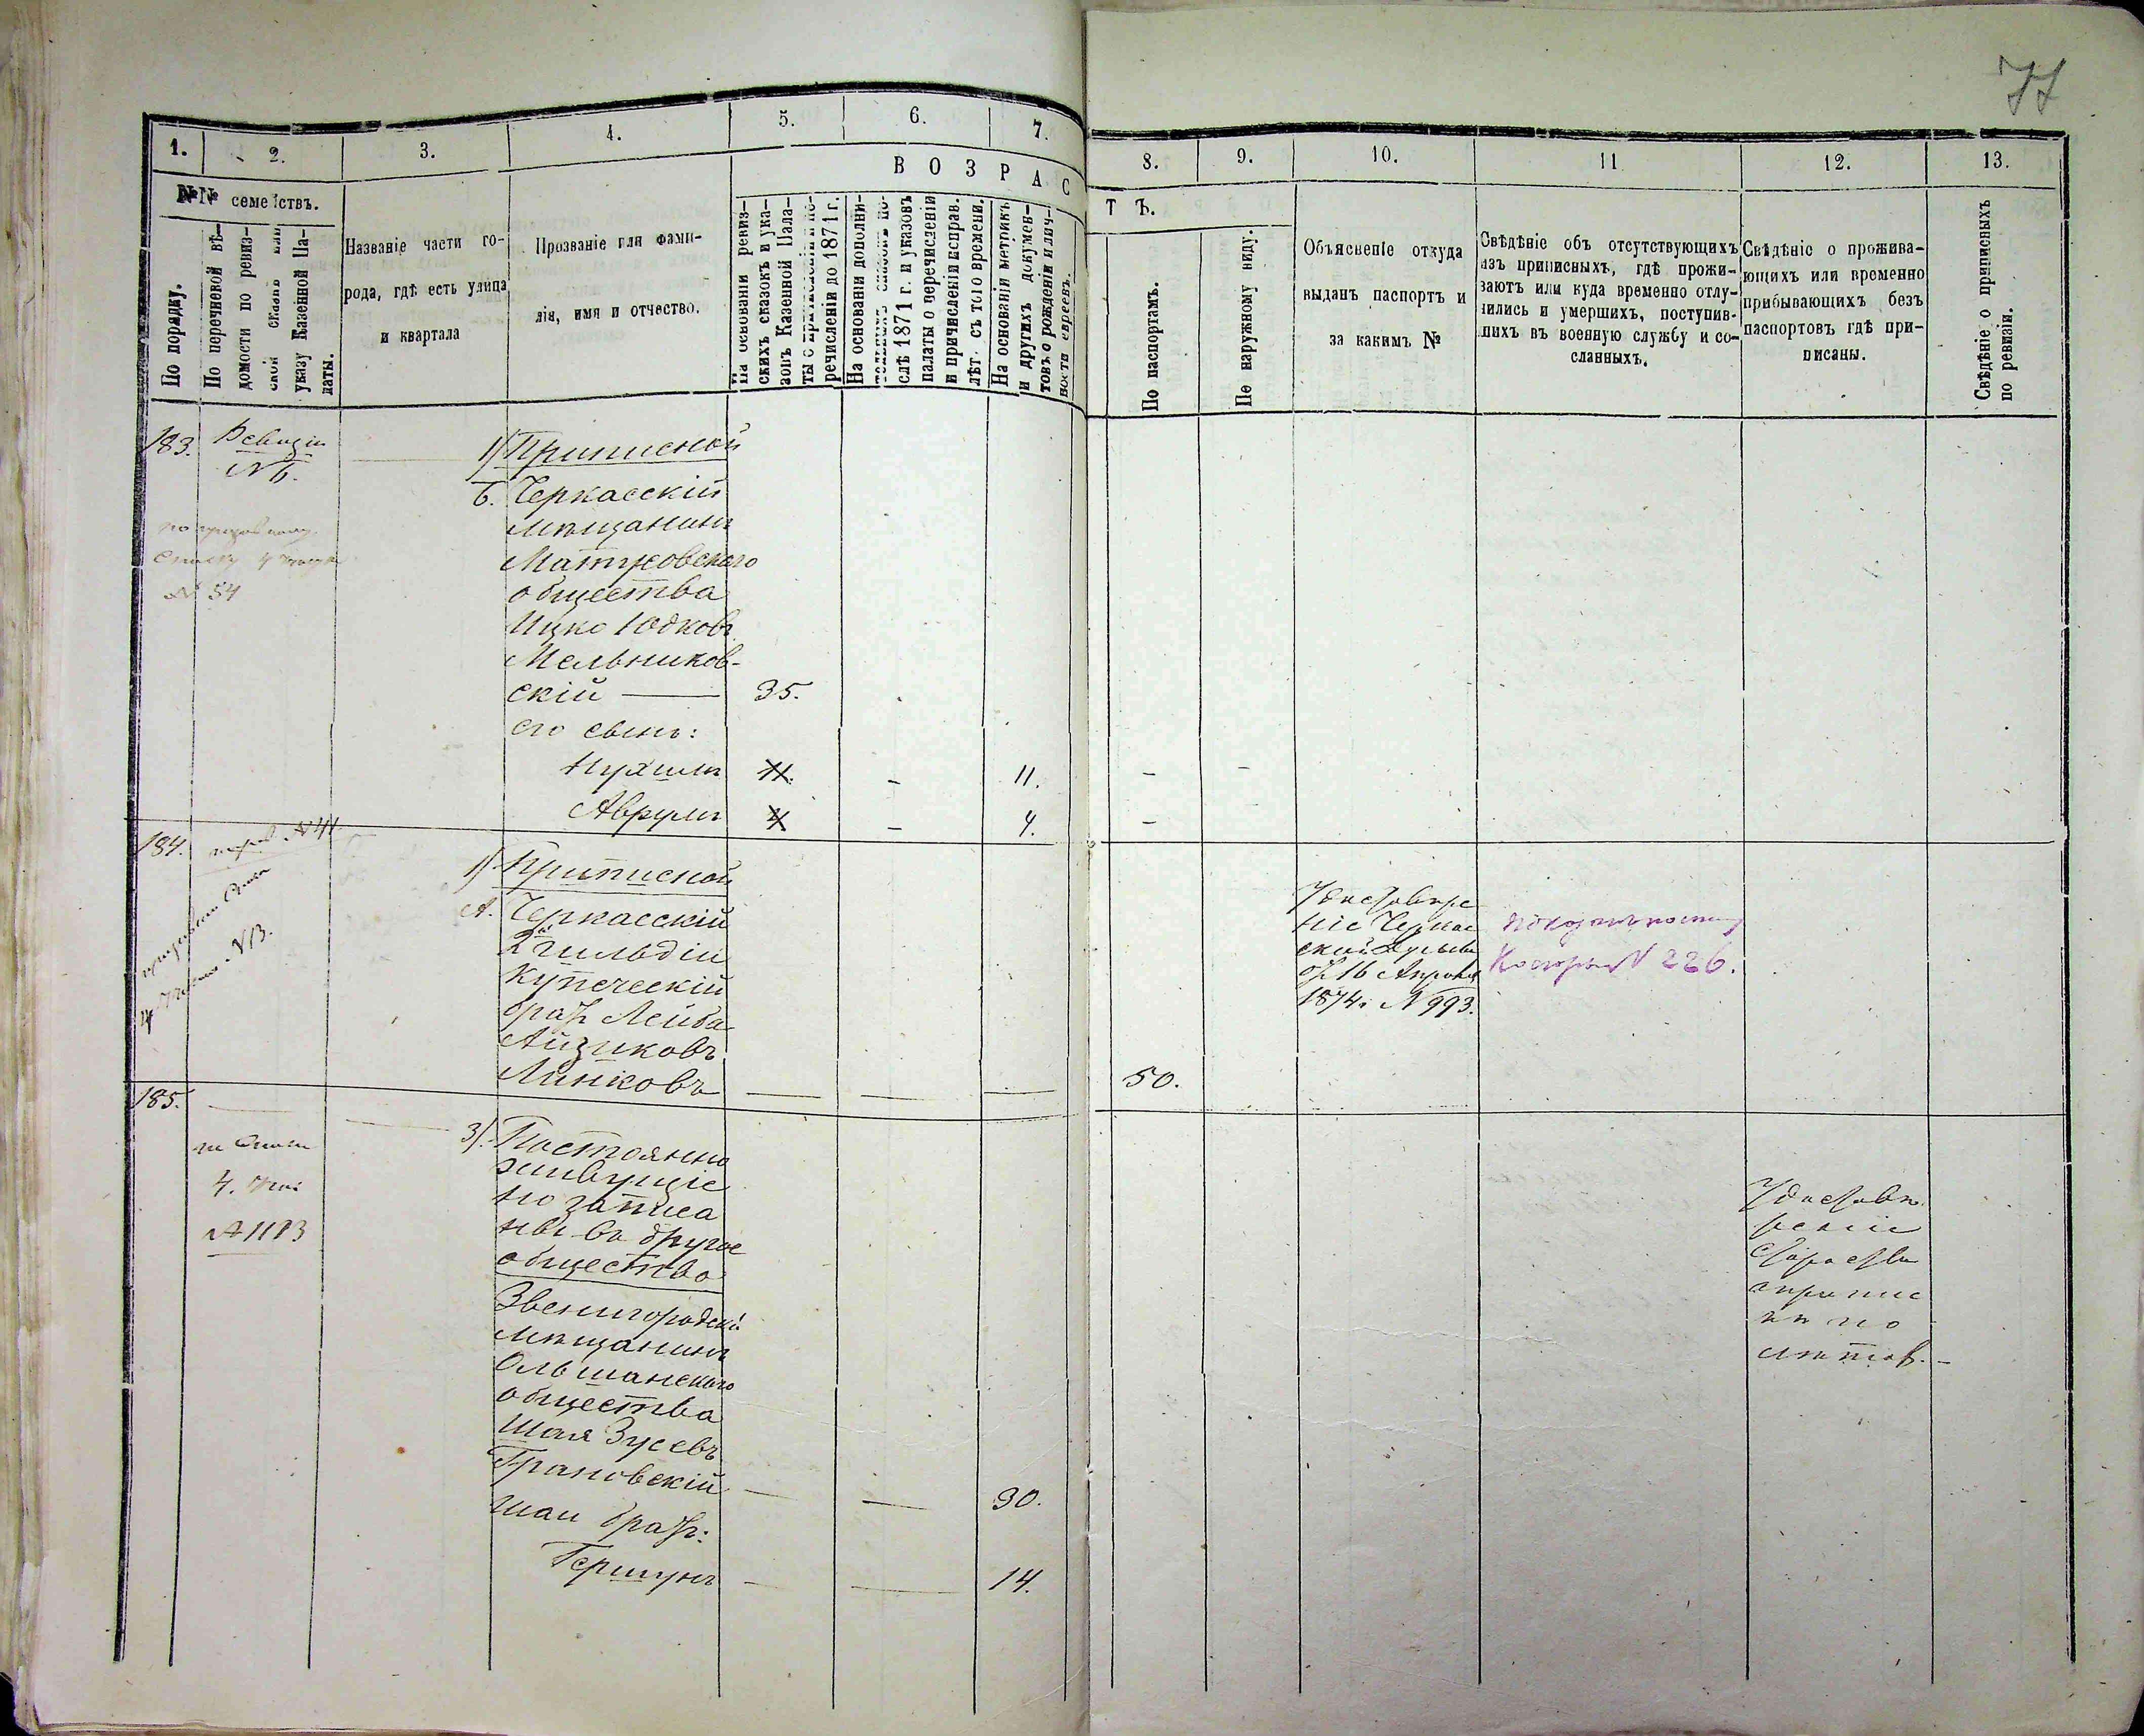 77
1.
2.
3.
4.
5.
6.
7.
8.
9.
10.
11
12.
13.
№№ семействъ.
В О З Р А С
Т Ъ.
По порядку.
По перечневой вѣ-
домости по ревиз-
ской сказкѣ или
указу Казенной Па-
латы.
Названіе части го-
рода, гдѣ есть улица
и квартала
Прозваніе или фами-
лія, имя и отчество.
На основаніи ревиз-
скихъ сказокъ и ука-
зовъ Казенной Пала-
ты о
речисленіи до 1871 г.
На основаніи дополни-
слѣ 1871 г. и указовъ
палаты о перечисленіи
и причисленіи исправ.
лѣт. съ того времени.
На основаніи метрикъ
и другихъ докумен-
товъ о рожденіи и лич-
ности евреевъ.
По паспортамъ.
По наружному виду.
Объясненіе откуда
выданъ паспортъ и
за какимъ №
Свѣдѣніе объ отсутствующихъ
изъ приписныхъ, гдѣ прожи-
ваютъ или куда временно отлу-
чились и умершихъ, поступив-
шихъ въ военную службу и со-
сланныхъ.
Свѣдѣніе о прожива-
ющихъ или временно
прибывающихъ безъ
паспортовъ гдѣ при-
писаны.
Свѣдѣніе о приписныхъ
по ревизіи.
183.
Ревизіи
№ 6.
по
списку 4 участка
№ 54
1) Приписной
Б. Черкасскій
мѣщанинъ
общества
Ицко Юдковъ
Мельников-
скій — 35.
его сынъ:
Нухимъ 11. - 11. - -
Аврумъ 4 - 4. -
184.
№ 41
№ 13.
1) Приписной
А. Черкасскій
2й гильдіи
купеческій
братъ Лейба
Айзиковъ
Линковъ — — — 50.
Удостовѣре
ніе Черкас
ской Думы
отъ 16 Апрѣля
1874 г. № 993.
№ 226.
185.
4.
№ 1183
3) Постоянно
живущіе
но записа
ны въ другое
общество
Звенигородскій
мѣщанинъ
Ольшанскаго
общества
Шая Зусевъ
Грановскій — — 30.
Шаи братъ:
Гершунъ — — 14.
Удостовѣ
реніе
старосты
о припис
кѣ по